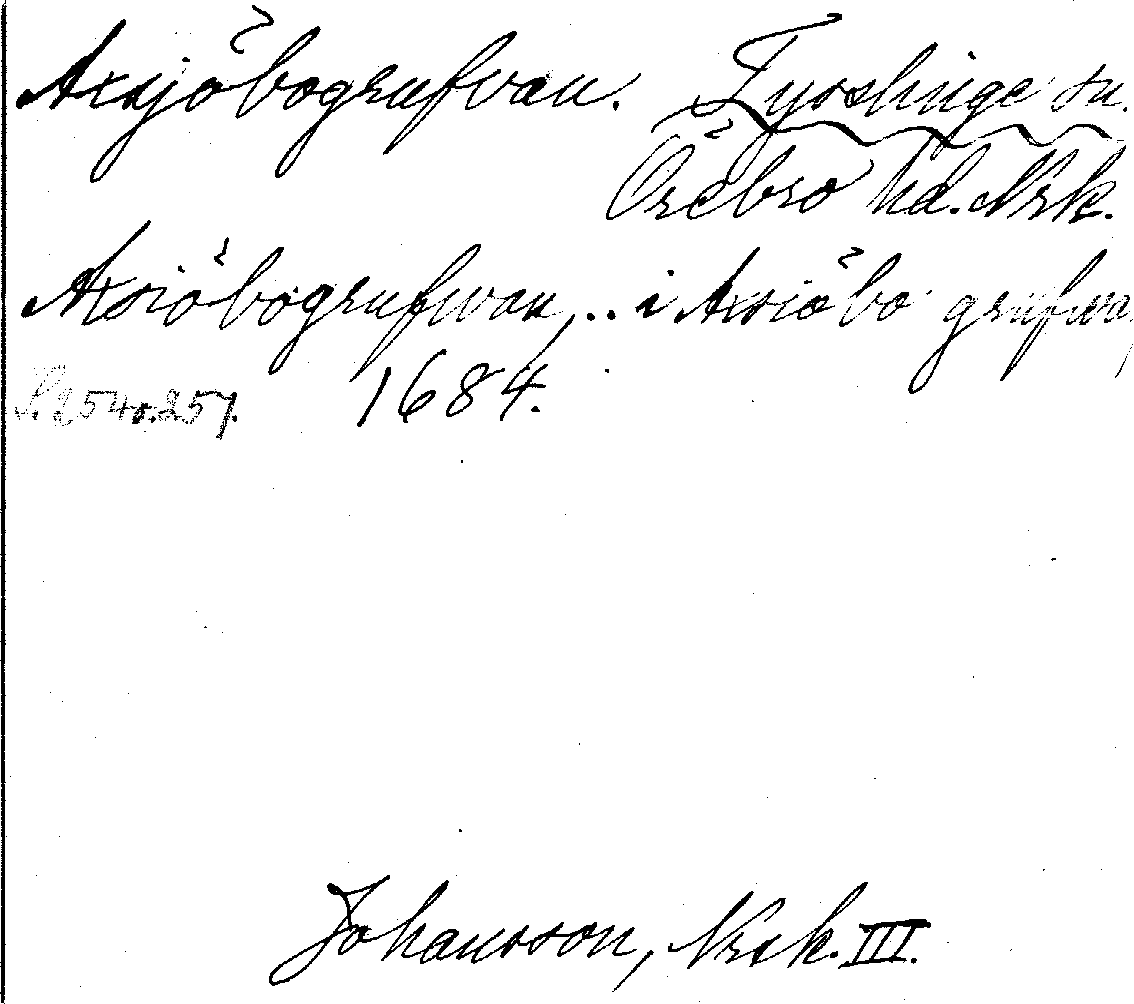 Axsjöbogrufvan. Tysslinge sn.
Örebro hd. Nrk.
Axsiöbogrufwan,.. i Axsiöbo grufwa,
S. 254 o. 257. 1684.
Johansson, Nrk. III.